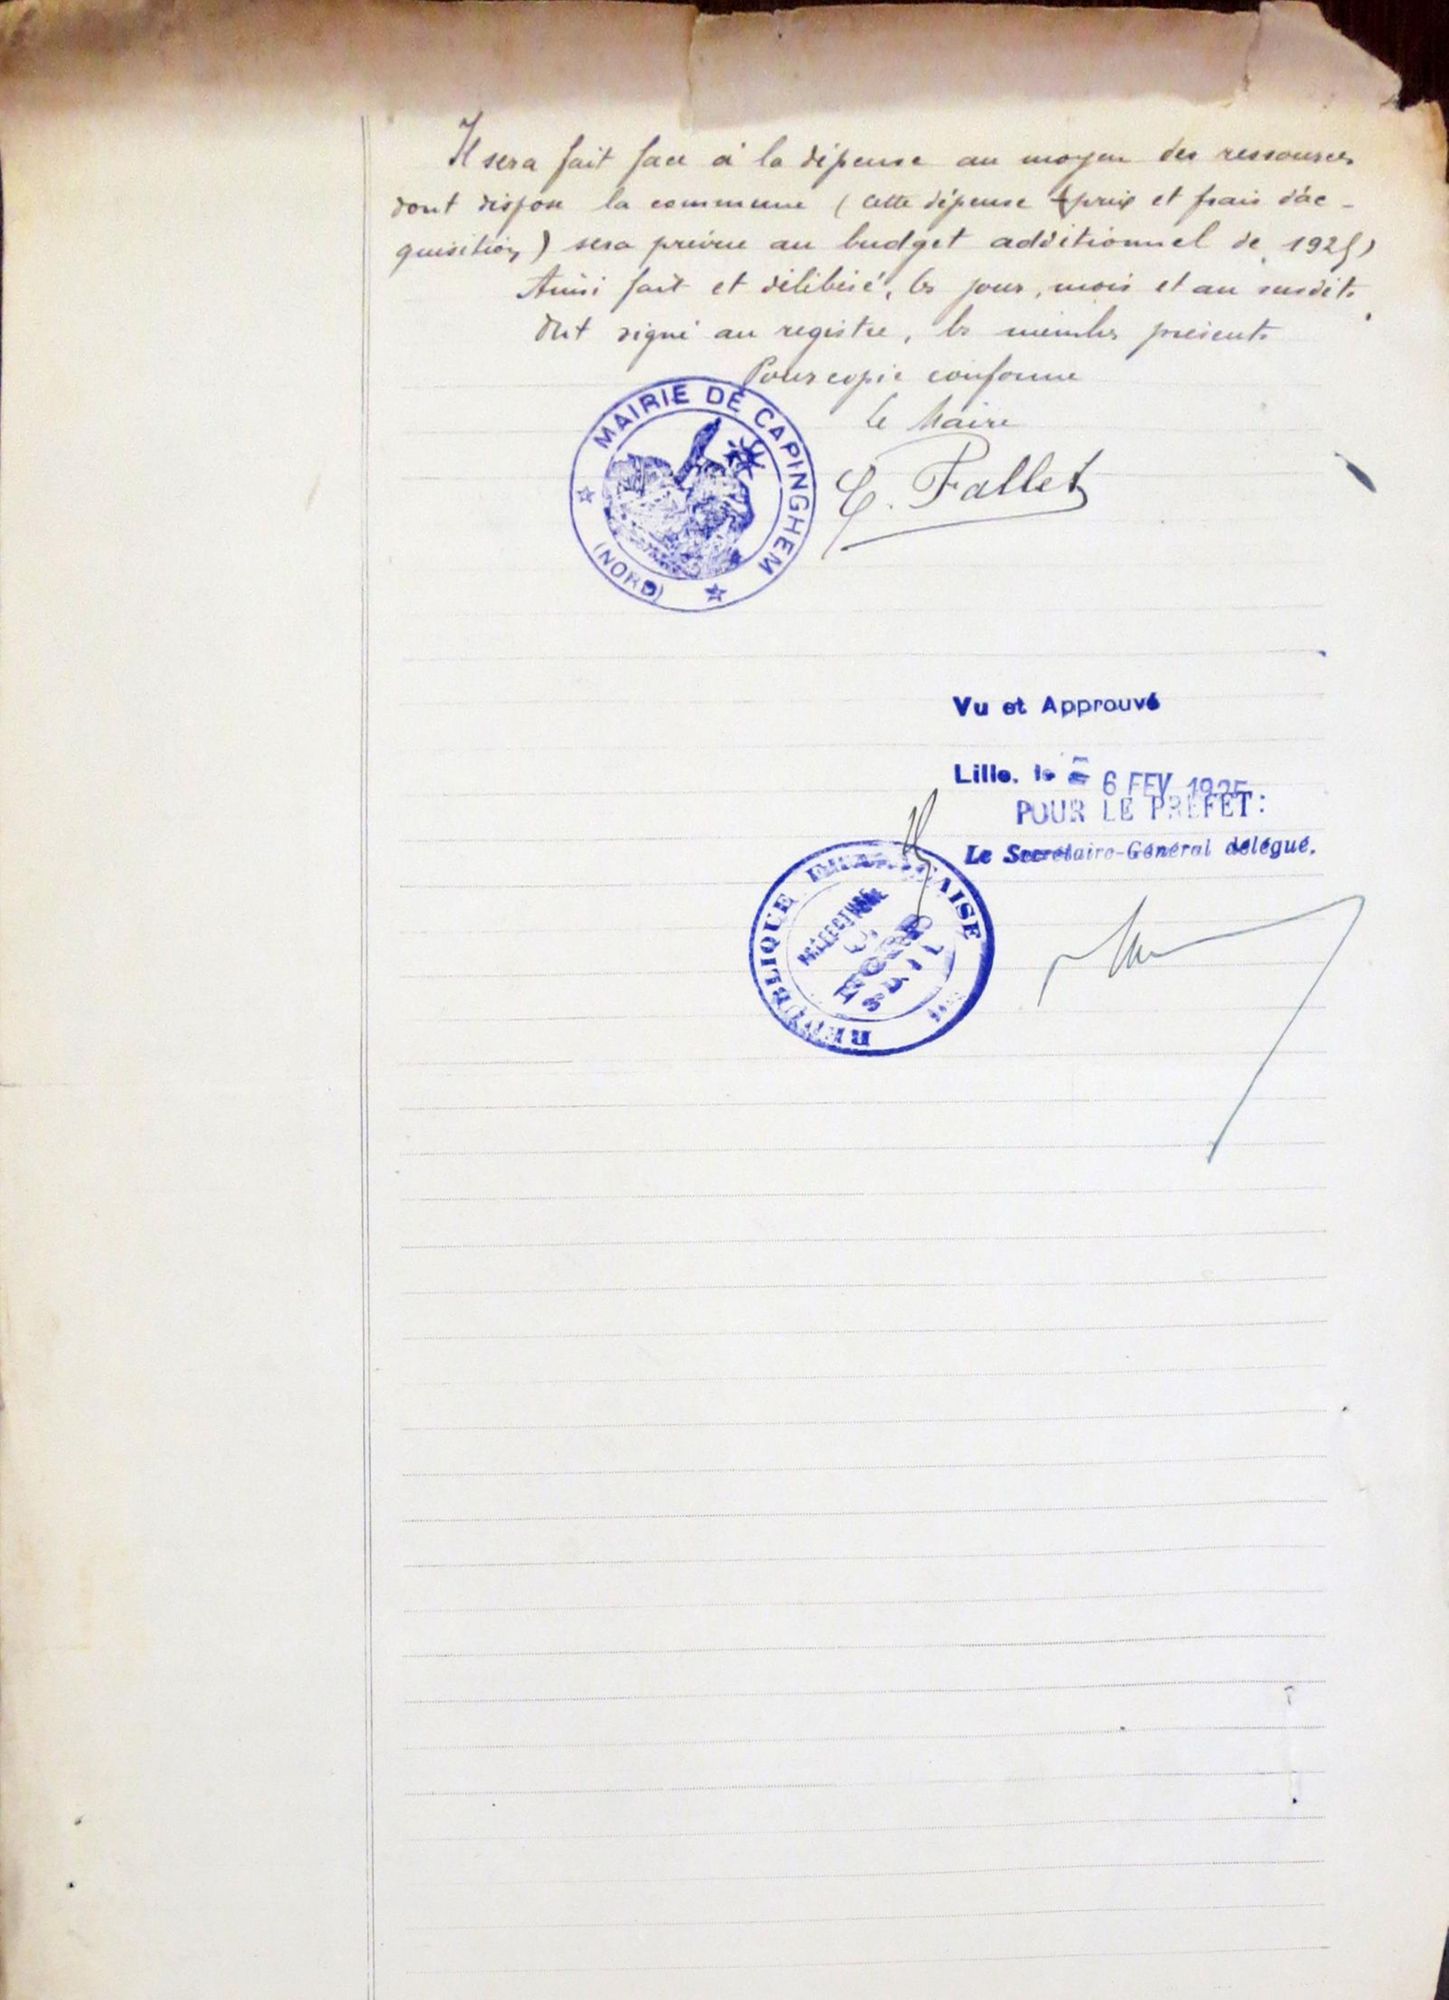 Il sera fait face à la dépense au moyen des ressources
dont dispose la commune ( cette dépense (prix et frais d'ac-
quisition) sera prévue au budget additionnel de 1925)
Ainsi fait et délibéré, les jour, mois et an susdits
Ont signé au registre, les membres présents
Pour copie conforme
Le Maire
MAIRIE DE CAPINGHEM
(NORD)
C. Fallet
Vu et Approuvé
Lille, le 6 FEV 1925
POUR LE PREFET:
Le Secrétaire-Général délégué.
REPUBLIQUE FRANÇAISE
PRÉFECTURE
NORD